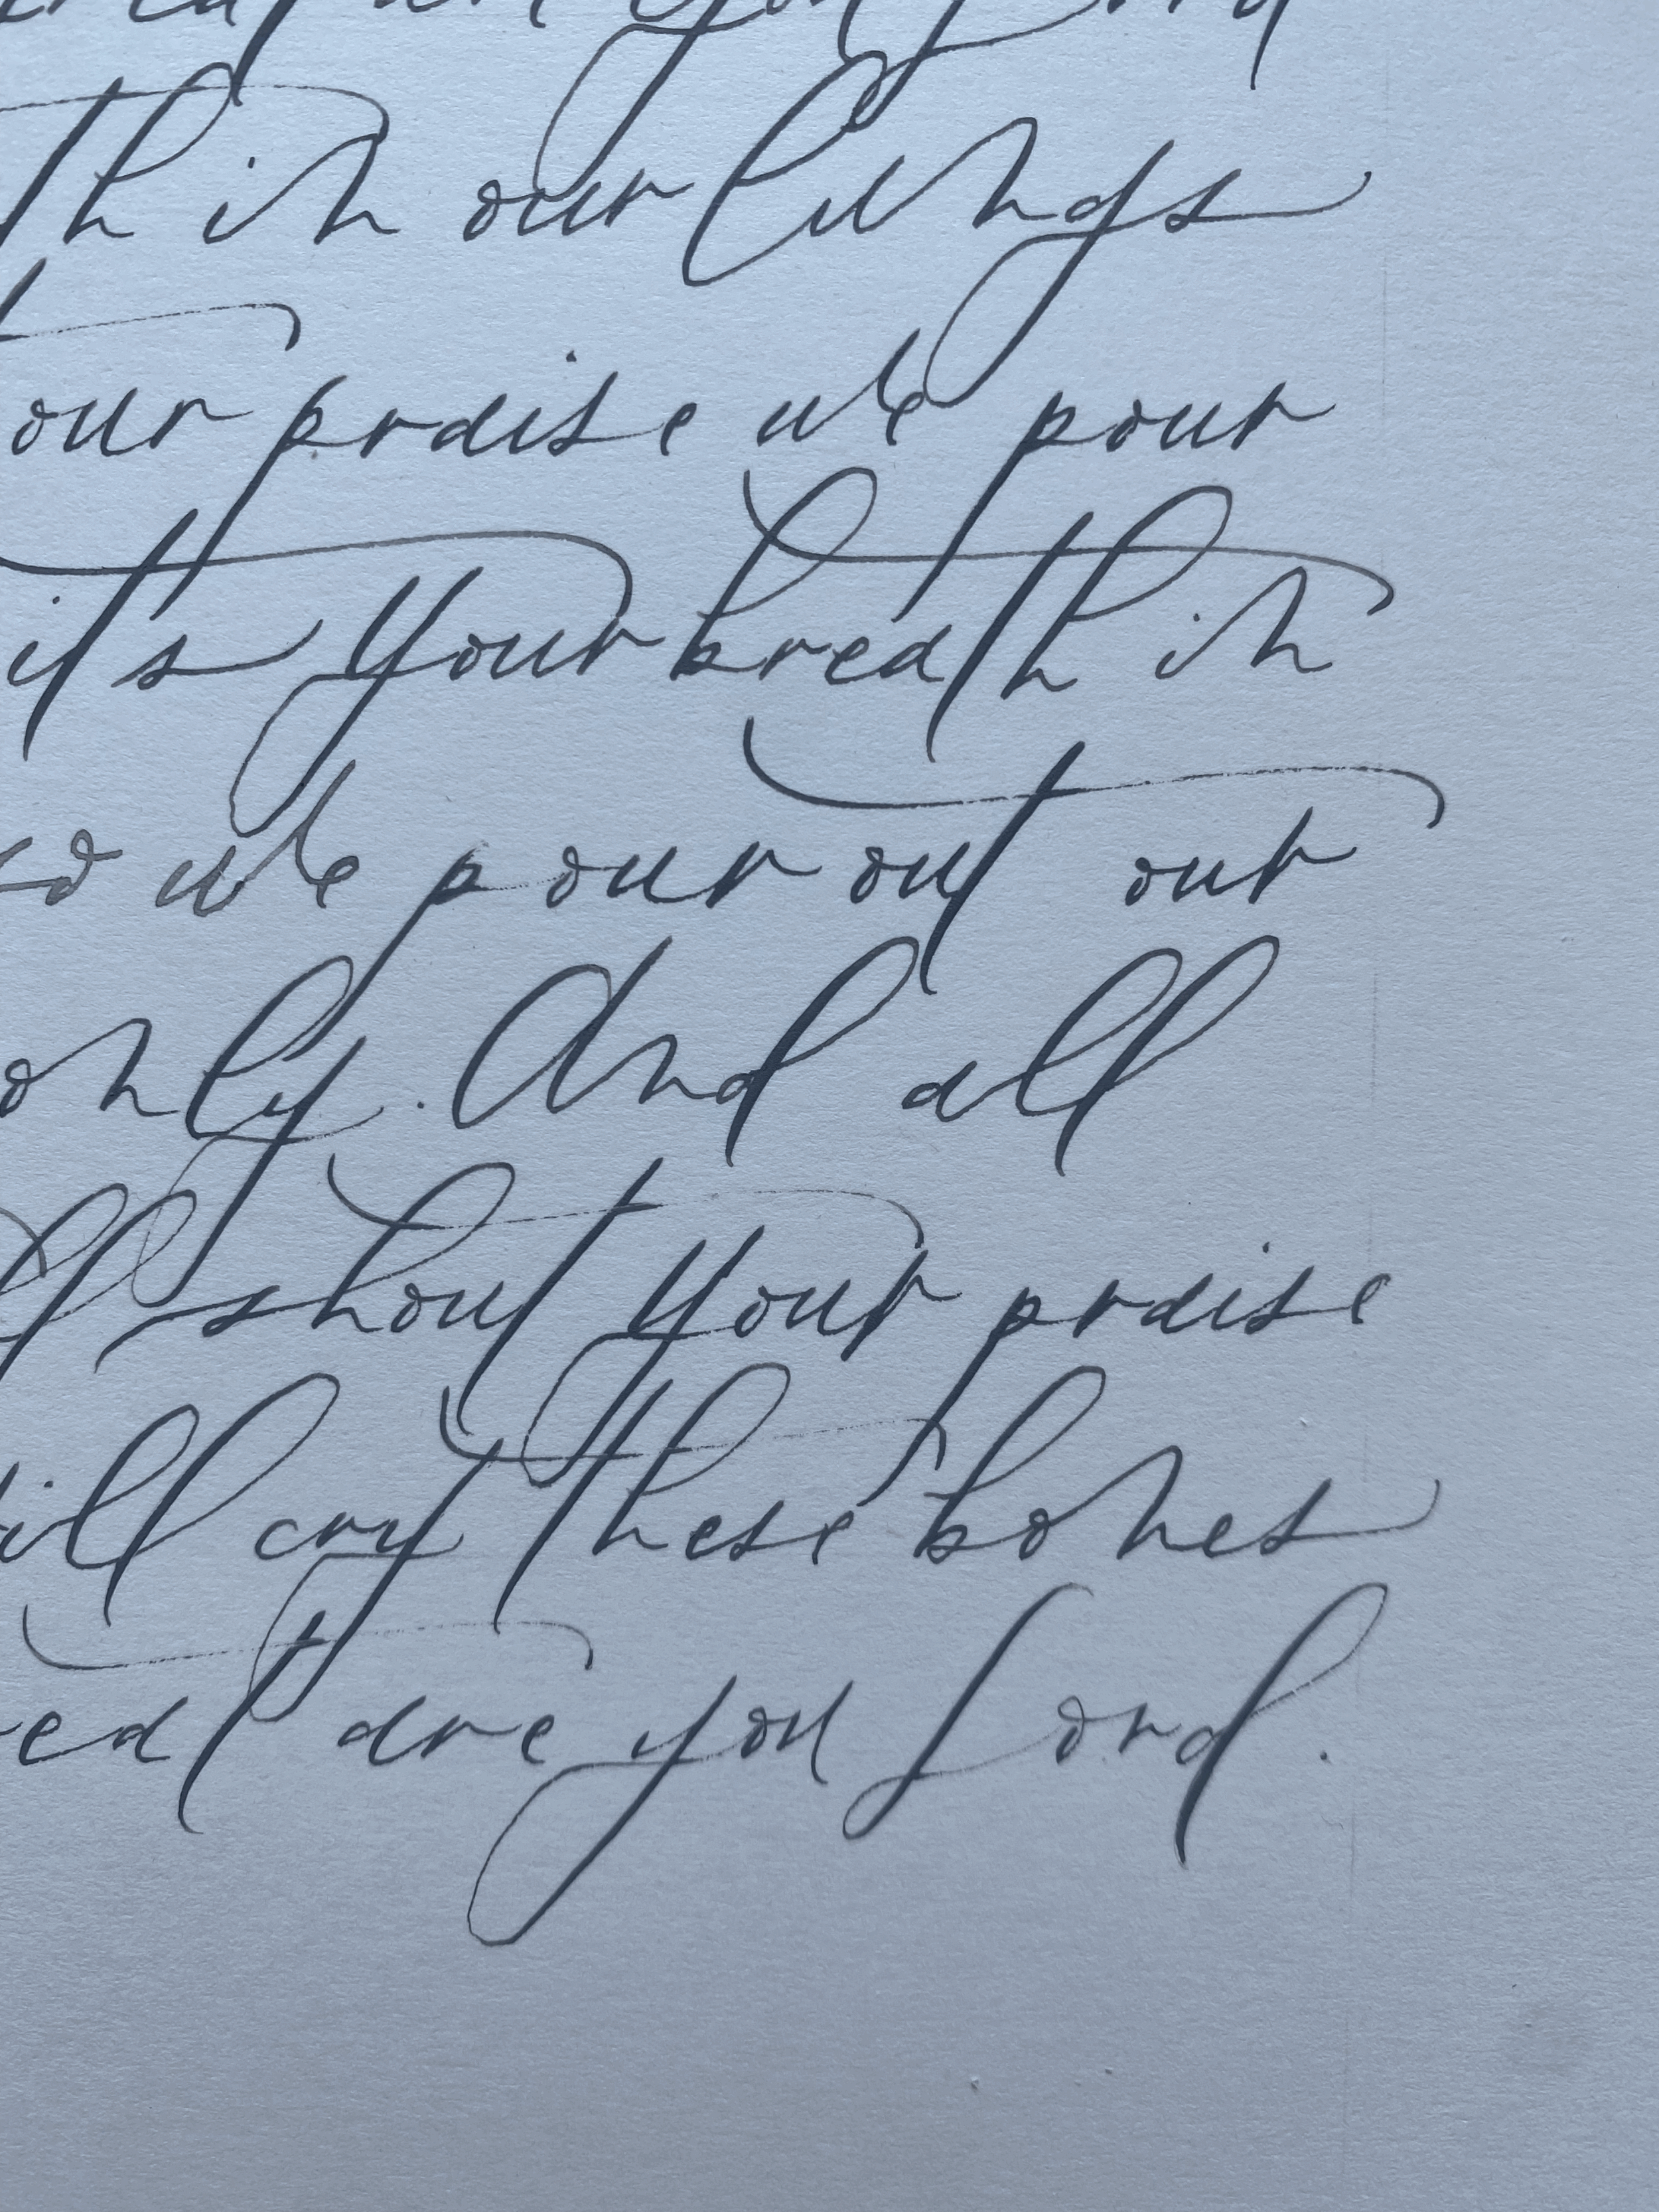 are you Lord
th in our lungs
our praise we pour
it's your breath in
so we pour out our
only. And all
shout your praise
will cry these bones
are you Lord.